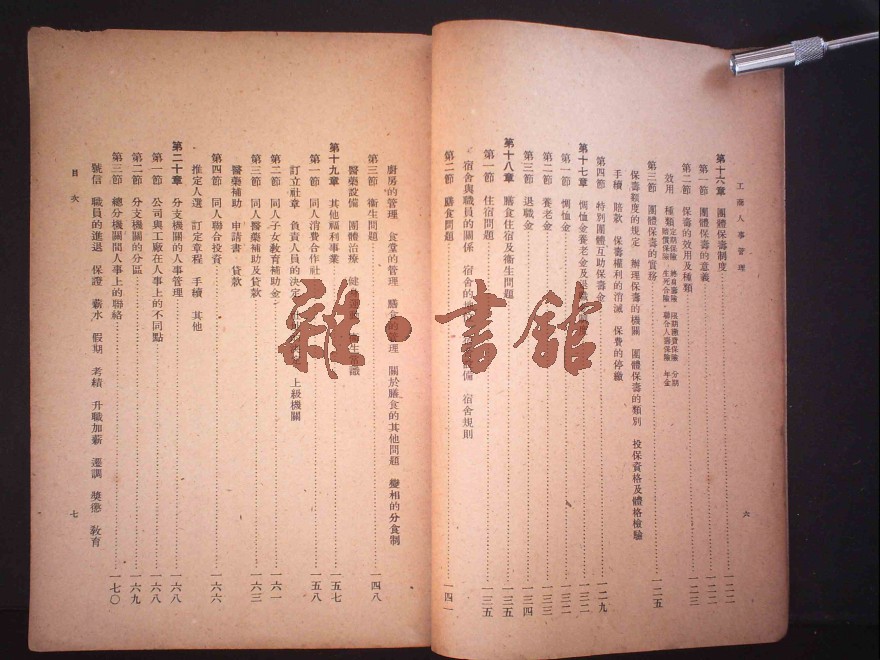 工商人事管理
第十六章 團體保壽制度 一二二
第一節 團體保壽的意義 一二二
第二節 保壽的效用及種類 一二三
效用 種類 定期保險 終身壽險 限期繳費保險 分期
賠償保險 生死合險 聯合人壽保險 年金
第三節 團體保壽的實務 一二五
保壽額度的規定 辦理保壽的機關 團體保壽的類別 投保資格及體格檢驗
手續 賠款 保壽權利的消滅 保費的停繳
第四節 特別團體互助保壽金 一二九
第十七章 恤金養老金及退職 一三二
第一節 恤金 一三二
第二節 養老金 一三三
第三節 退職金 一三四
第十八章 膳食住宿及衛生問題 一三五
第一節 住宿問題 一三五
宿舍與職員的關係 宿舍的 設備 宿舍規則
第二節 膳食問題 一四一
六
廚房的管理 食堂的管理 膳食的管理 關於膳食的其他問題 變相的分食制
第三節 衛生問題 一四八
醫藥設備 團體治療 健身運動 衛生常識
第十九章 其他福利事業 一五七
第一節 同人消費合作社 一五八
訂立社章 負責人員的決定 上級機關
第二節 同人子女教育補助金 一六一
第三節 同人醫藥補助及貸款 一六三
醫藥補助 申請書 貸款
第四節 同人聯合投資 一六六
推定人選 訂定章程 手續 其他
第二十章 分支機關的人事管理 一六八
第一節 公司與工廠在人事上的不同點 一六八
第二節 分支機關的分區 一六九
第三節 總分機關間人事上的聯絡 一七〇
號信 職員的進退 保證 薪水 假期 考績 升職加薪 遷調 獎懲 教育
目次
七
雜·書館